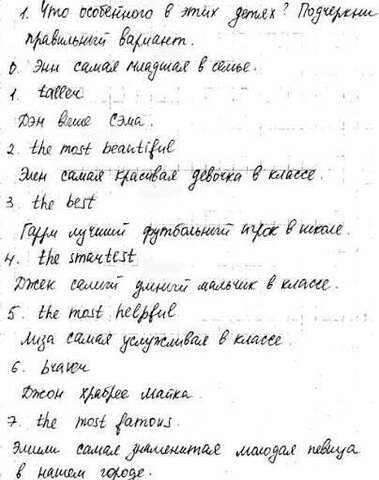 1. Что особенного в этих детях? Подчеркни
правильный вариант.
0. Энн самая младшая в семье.
1. taller
Дэн выше Сэма.
2. the most beautiful
Элен самая красивая девочка в классе.
3 the best
Гарри лучший футбольный игрок в школе.
4. the smartest
Джек самый умный мальчик в классе.
5. the most helpful
Лиза самая услужливая в классе.
6. braver
Джон храбрее Майка.
7. the most famous.
Эмили самая знаменитая молодая певица
в нашем городе.